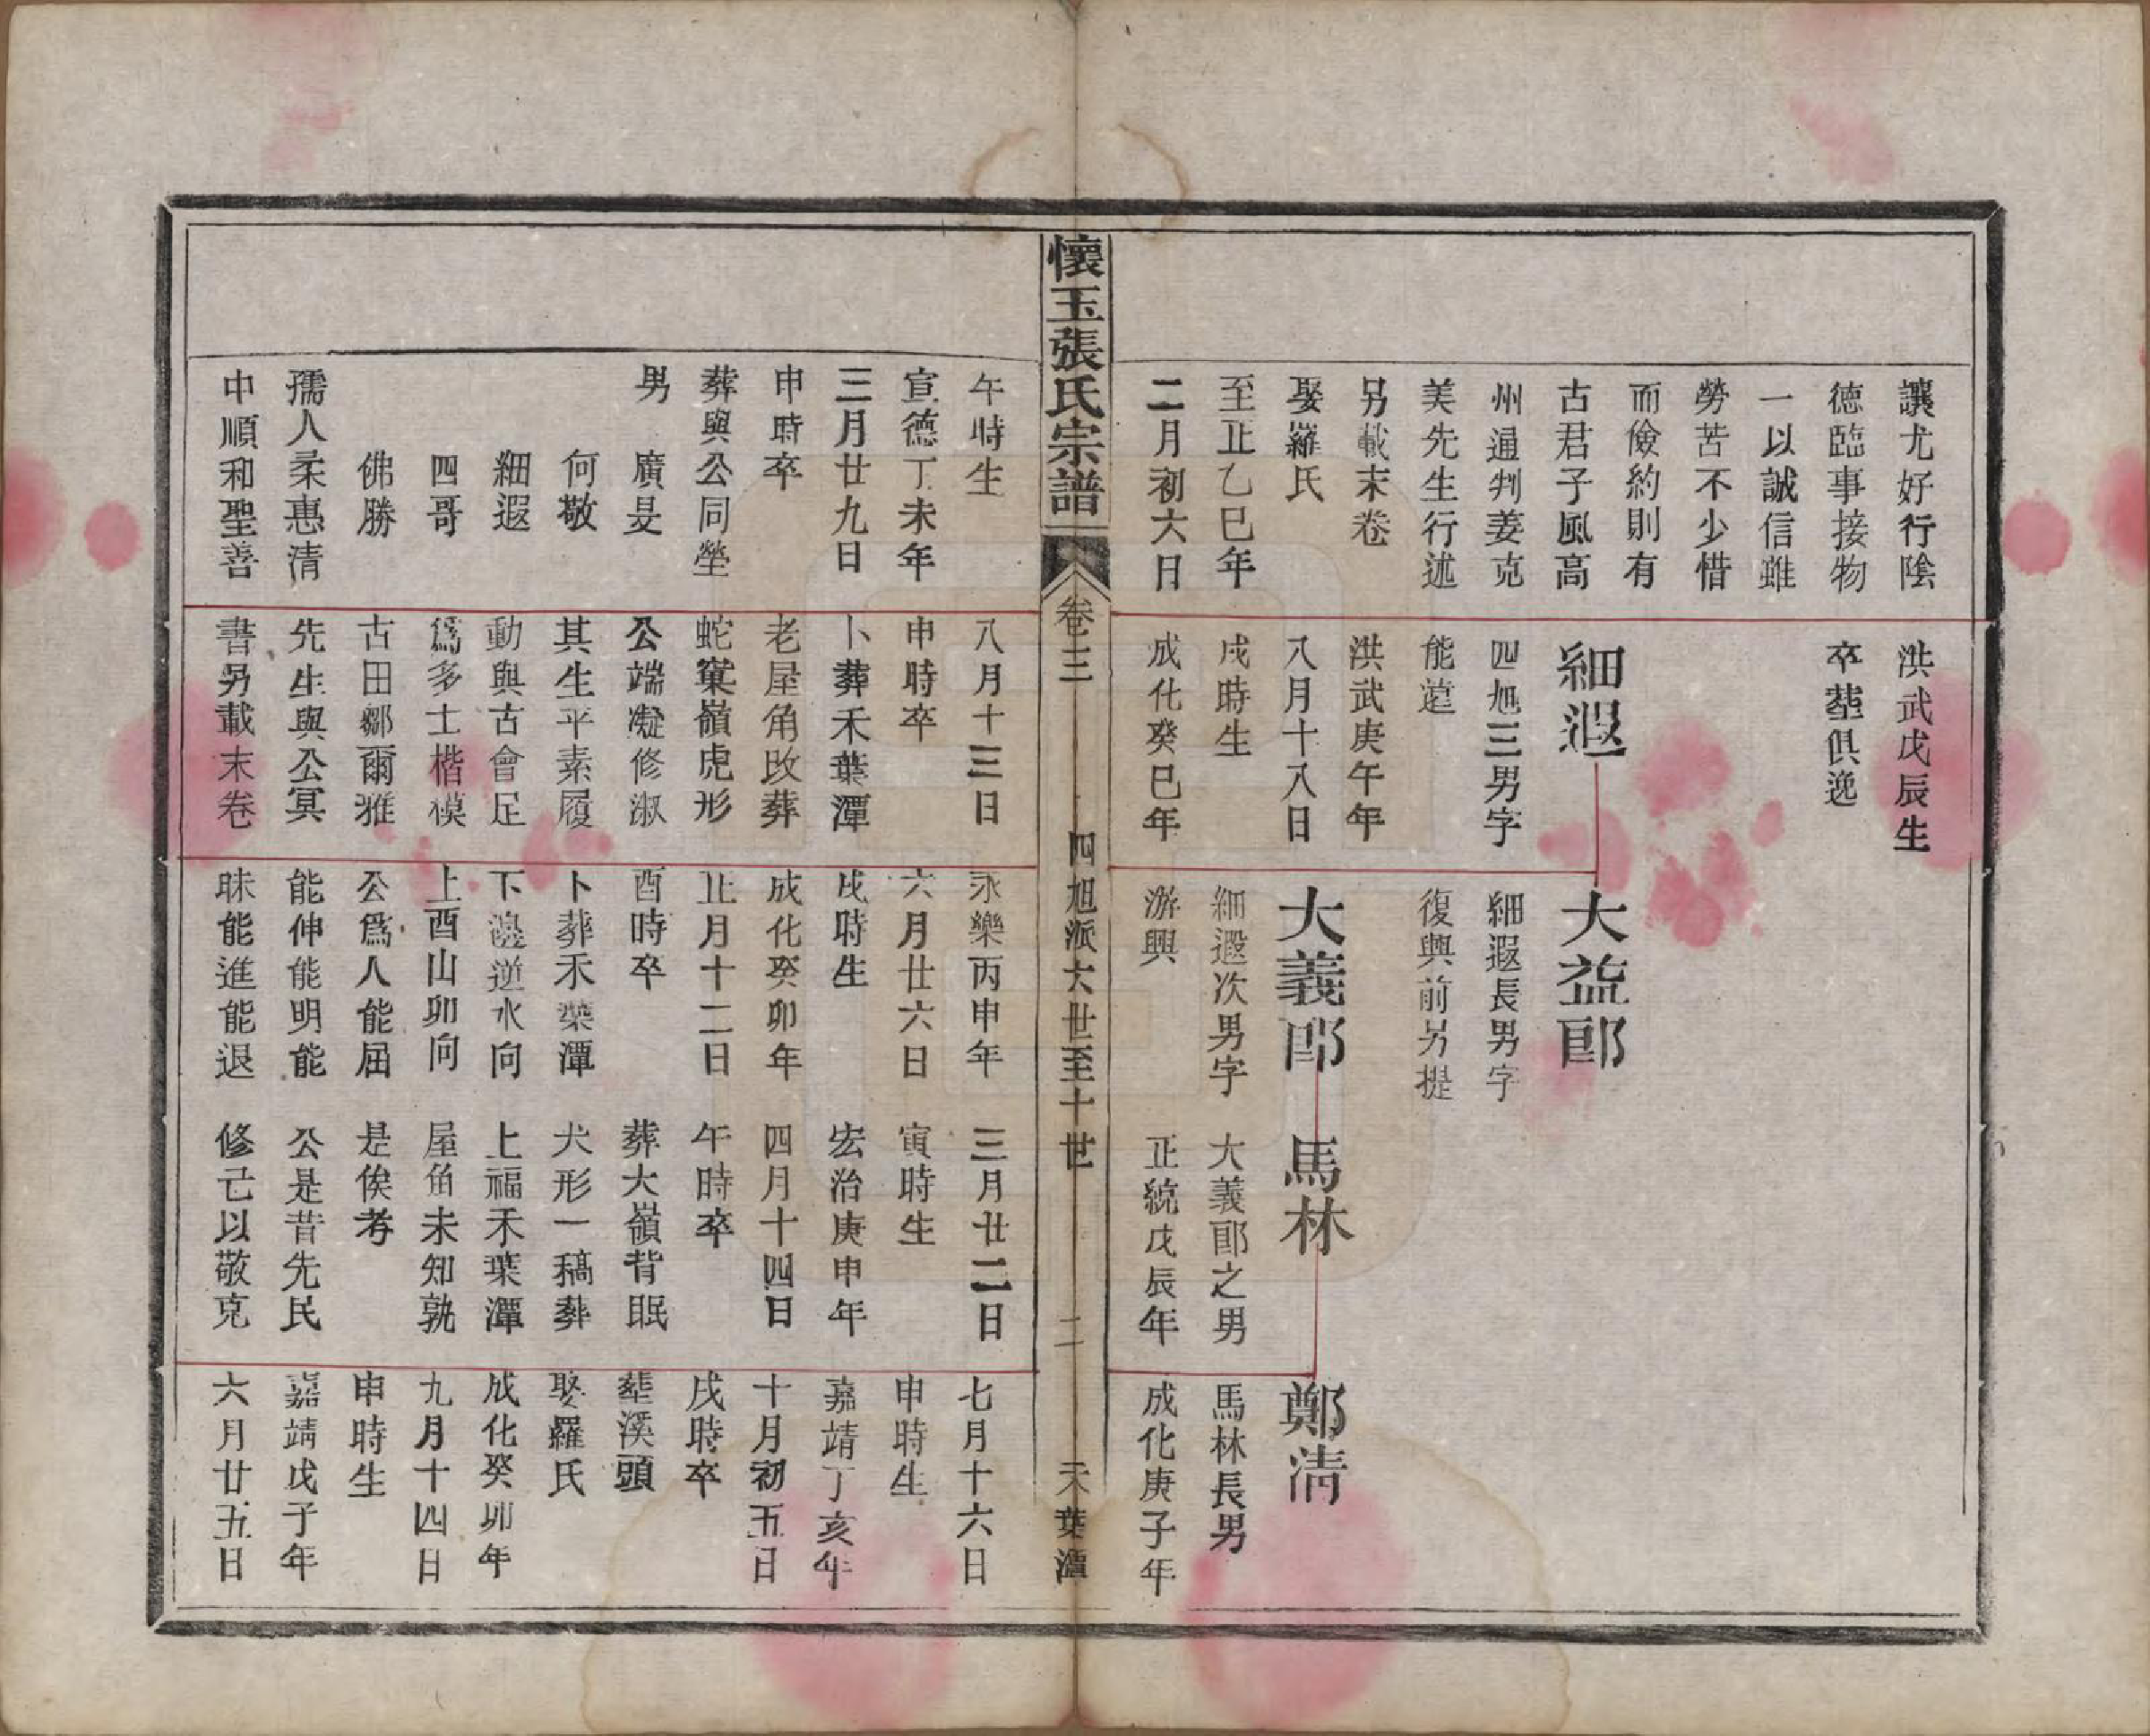 讓尤好行陰
德臨事接物
一以誠信雖
勞苦不少惜
而儉約則有
古君子風高
州通判姜克
美先生行述
另載末卷
娶羅氏
至正乙巳年
二月初六日
洪武戊辰生
卒塟俱逸
細遐
四旭三男字
能遠
洪武庚午年
八月十八日
戌時生
成化癸巳年
大益郎
細遐長男字
復興前另提
大義郎
細遐次男字
游興
馬林
大義郎之男
正統戊辰年
鄭清
馬林長男
成化庚子年
懷玉張氏宗譜
卷三
四旭派六世至十世
二
禾葉潭
午時生
宣德丁未年
三月廿九日
申時卒
葬與公同塋
男
廣旻
何敬
細遐
四哥
佛勝
孺人柔惠清
中順和聖善
八月十三日
申時卒
卜葬禾葉潭
老屋角改葬
蛇窠嶺虎形
公端凝修淑
其生平素履
動與古會足
爲多士楷模
古田鄒爾雅
先生與公冥
書另載末卷
永樂丙申年
六月廿六日
戌時生
成化癸卯年
正月十二日
酉時卒
卜葬禾葉潭
下邊逆水向
上酉山卯向
公爲人能屈
能伸能明能
昧能進能退
三月廿二日
寅時生
宏治庚申年
四月十四日
午時卒
葬大嶺背眠
犬形一稿葬
上福禾葉潭
屋角未知孰
是俟考
公是昔先民
修己以敬克
七月十六日
申時生
嘉靖丁亥年
十月初五日
戌時卒
塟溪頭
娶羅氏
成化癸卯年
九月十四日
申時生
嘉靖戊子年
六月廿五日